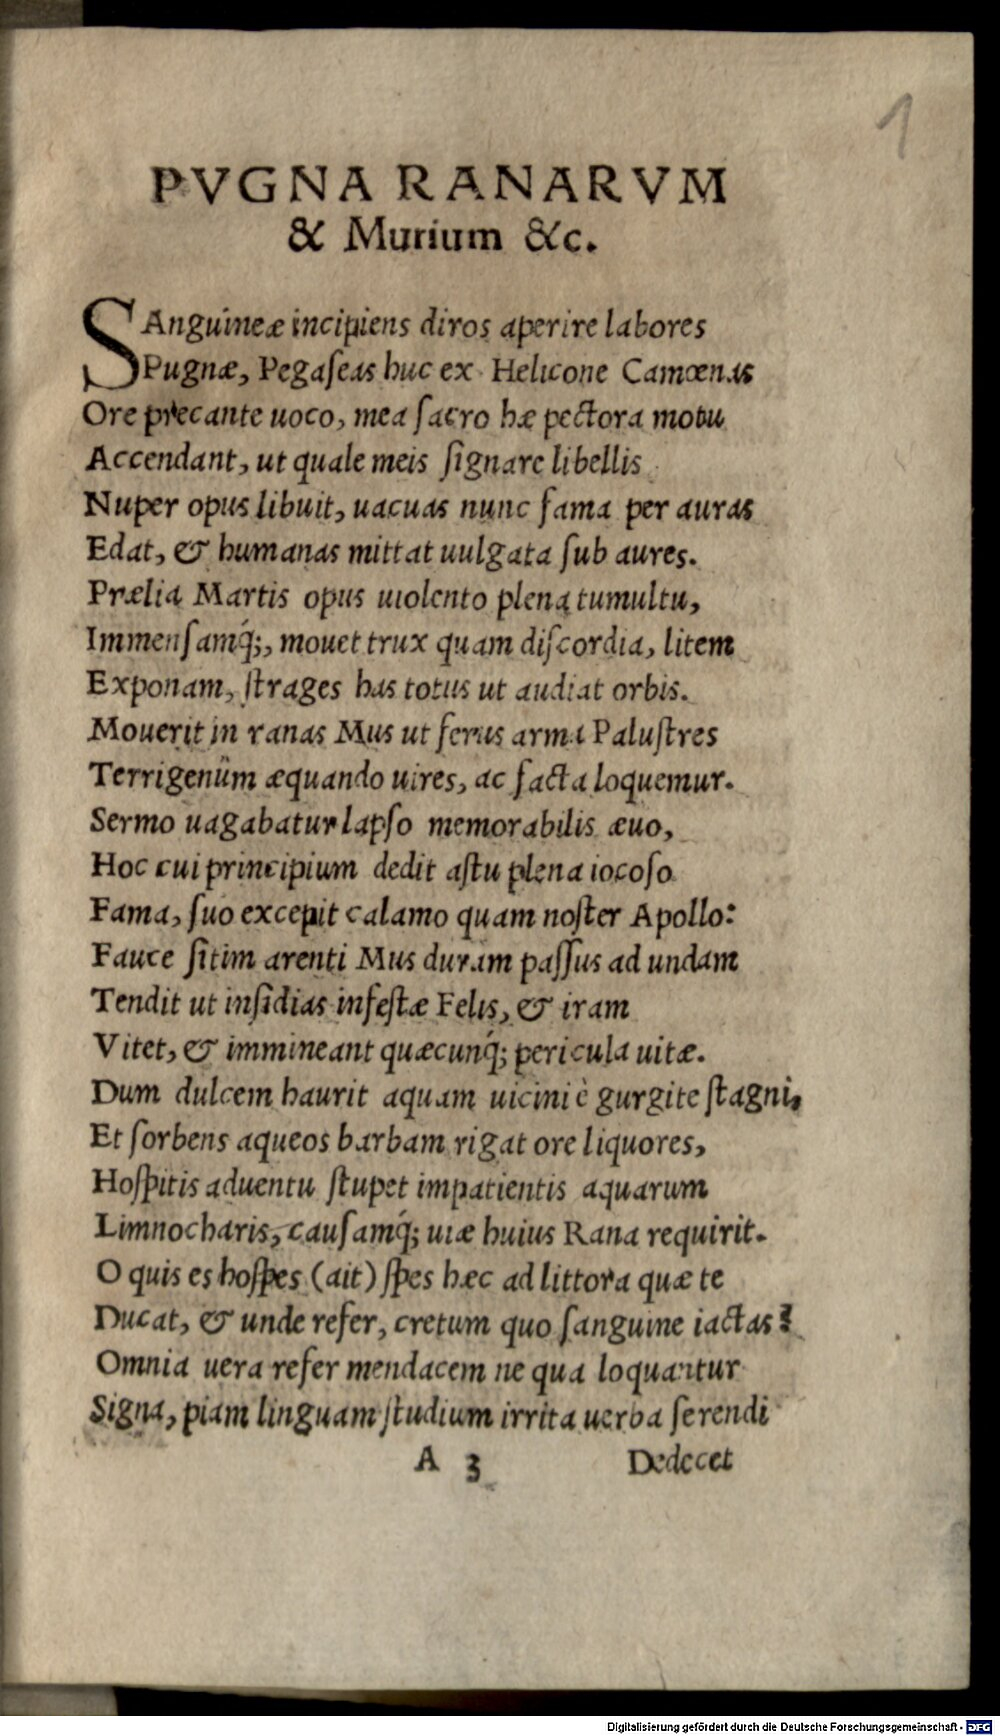 1
PVGNA RANARVM
& Murium &c.
SAnguineæ incipiens diros aperire labores
Pugnæ, Pegaſeas huc ex Helicone Camœnas
Ore precante uoco, mea ſacro hæ pectora motu
Accendant, ut quale meis ſignare libellis
Nuper opus libuit, uacuas nunc fama per auras
Edat, & humanas mittat uulgata ſub aures.
Prælia Martis opus uiolento plena tumultu,
Immenſamq́;, mouet trux quam diſcordia, litem
Exponam, ſtrages has totus ut audiat orbis.
Mouerit in ranas Mus ut ferus arma Paluſtres
Terrigenûm æquando uires, ac facta loquemur.
Sermo uagabatur lapſo memorabilis æuo,
Hoc cui principium dedit aſtu plena iocoſo
Fama, ſuo excepit calamo quam noſter Apollo:
Fauce ſitim arenti Mus duram paſſus ad undam
Tendit ut inſidias infeſtæ Felis, & iram
Vitet, & immineant quæcunq́; pericula uitæ.
Dum dulcem haurit aquam uicini è gurgite ſtagni,
Et ſorbens aqueos barbam rigat ore liquores,
Hoſpitis aduentu ſtupet impatientis aquarum
Limnocharis, cauſamq́; uiæ huius Rana requirit.
O quis es hoſpes (ait) ſpes hæc ad littora quæ te
Ducat, & unde refer, cretum quo ſanguine iactas?
Omnia uera refer mendacem ne qua loquantur
Signa, piam linguam ſtudium irrita uerba ſerendi
A 3 Dedecet
Digitalisierung gefördert durch die Deutsche Forschungsgemeinschaft - DFG